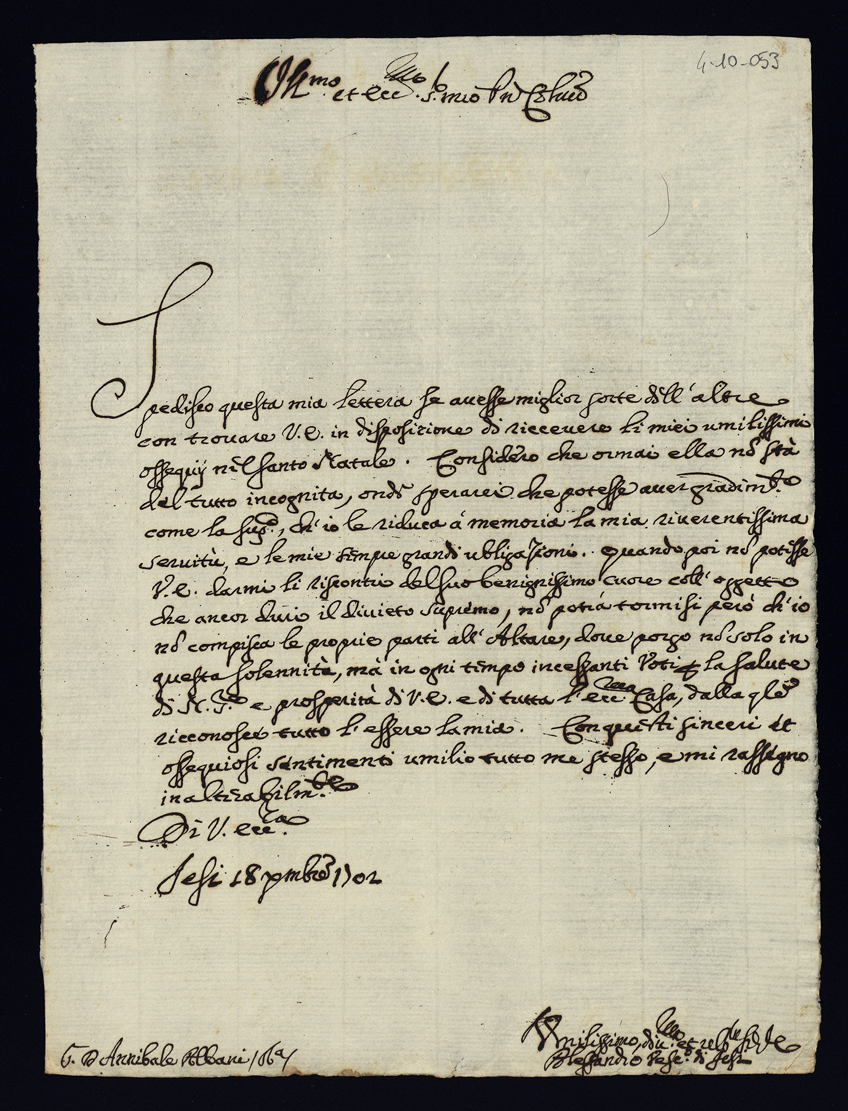 4-10-053
Ill.mo et Ecc.mo S.r mio P'ron Col.mo
Spedisco questa mia lettera se avesse miglior sorte dell'altre
con trovare V.E. in disposizione di riccevere li miei umilissimi
ossequÿ nel Santo Natale. Considero che ormai ella nõ stà
del tutto incognita, onde sperarei che potesse aver gradim.to
come la sup.co, ch'io le riduca à memoria la mia riverentissima
servitù, e le mie sempre grandi ubligazioni. Quando poi nõ potesse
V.E. darmi li riscontri del suo benignissimo cuore coll'oggetto
che ancor duri il divieto supremo, nõ potrà tormisi però ch'io
nõ compisca le proprie parti all'Altare, dove porgo nõ solo in
questa solennità, mà in ogni tempo incessanti Voti p la salute
di N. S.re e prosperità di V.E. e di tutta l'Ecc.ma Casa, dalla qle
ricconoscer tutto l'essere la mia. Con questi sinceri et
ossequiosi sentimenti umilio tutto me stesso, e mi rassegno
inalterabilm.te
Di V. Ecc.za
Jesi 18 Xmbre 1702
S. D Annibale Albani
Umilissimo, div.mo et
Alessandro Vesc.o di Jesi